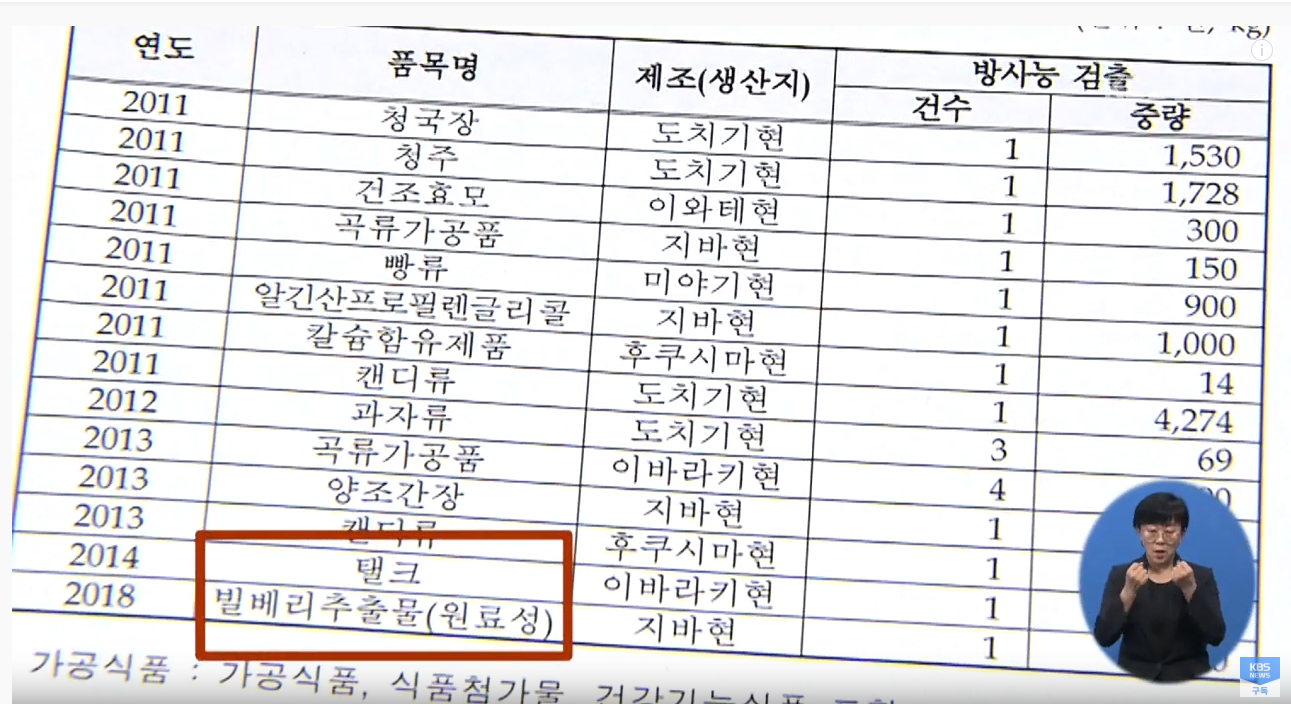 kg)
연도 품목명 제조(생산지) 방사능 검출
건수 중량
2011 청국장 도치기현 1 1,530
2011 청주 도치기현 1 1,728
2011 건조효모 이와테현 1 300
2011 곡류가공품 지바현 1 150
2011 빵류 미야기현 1 900
2011 알긴산프로필렌글리콜 지바현 1 1,000
2011 칼슘함유제품 후쿠시마현 1 14
2011 캔디류 도치기현 1 4,274
2012 과자류 도치기현 3 69
2013 곡류가공품 이바라키현 4
2013 양조간장 지바현 1
2013 캔디류 후쿠시마현 1
2014 탤크 이바라키현 1
2018 빌베리추출물(원료성) 지바현 1
가공식품 : 가공식품, 식품첨가물, 건강기능식품
KBS
NEWS
구독